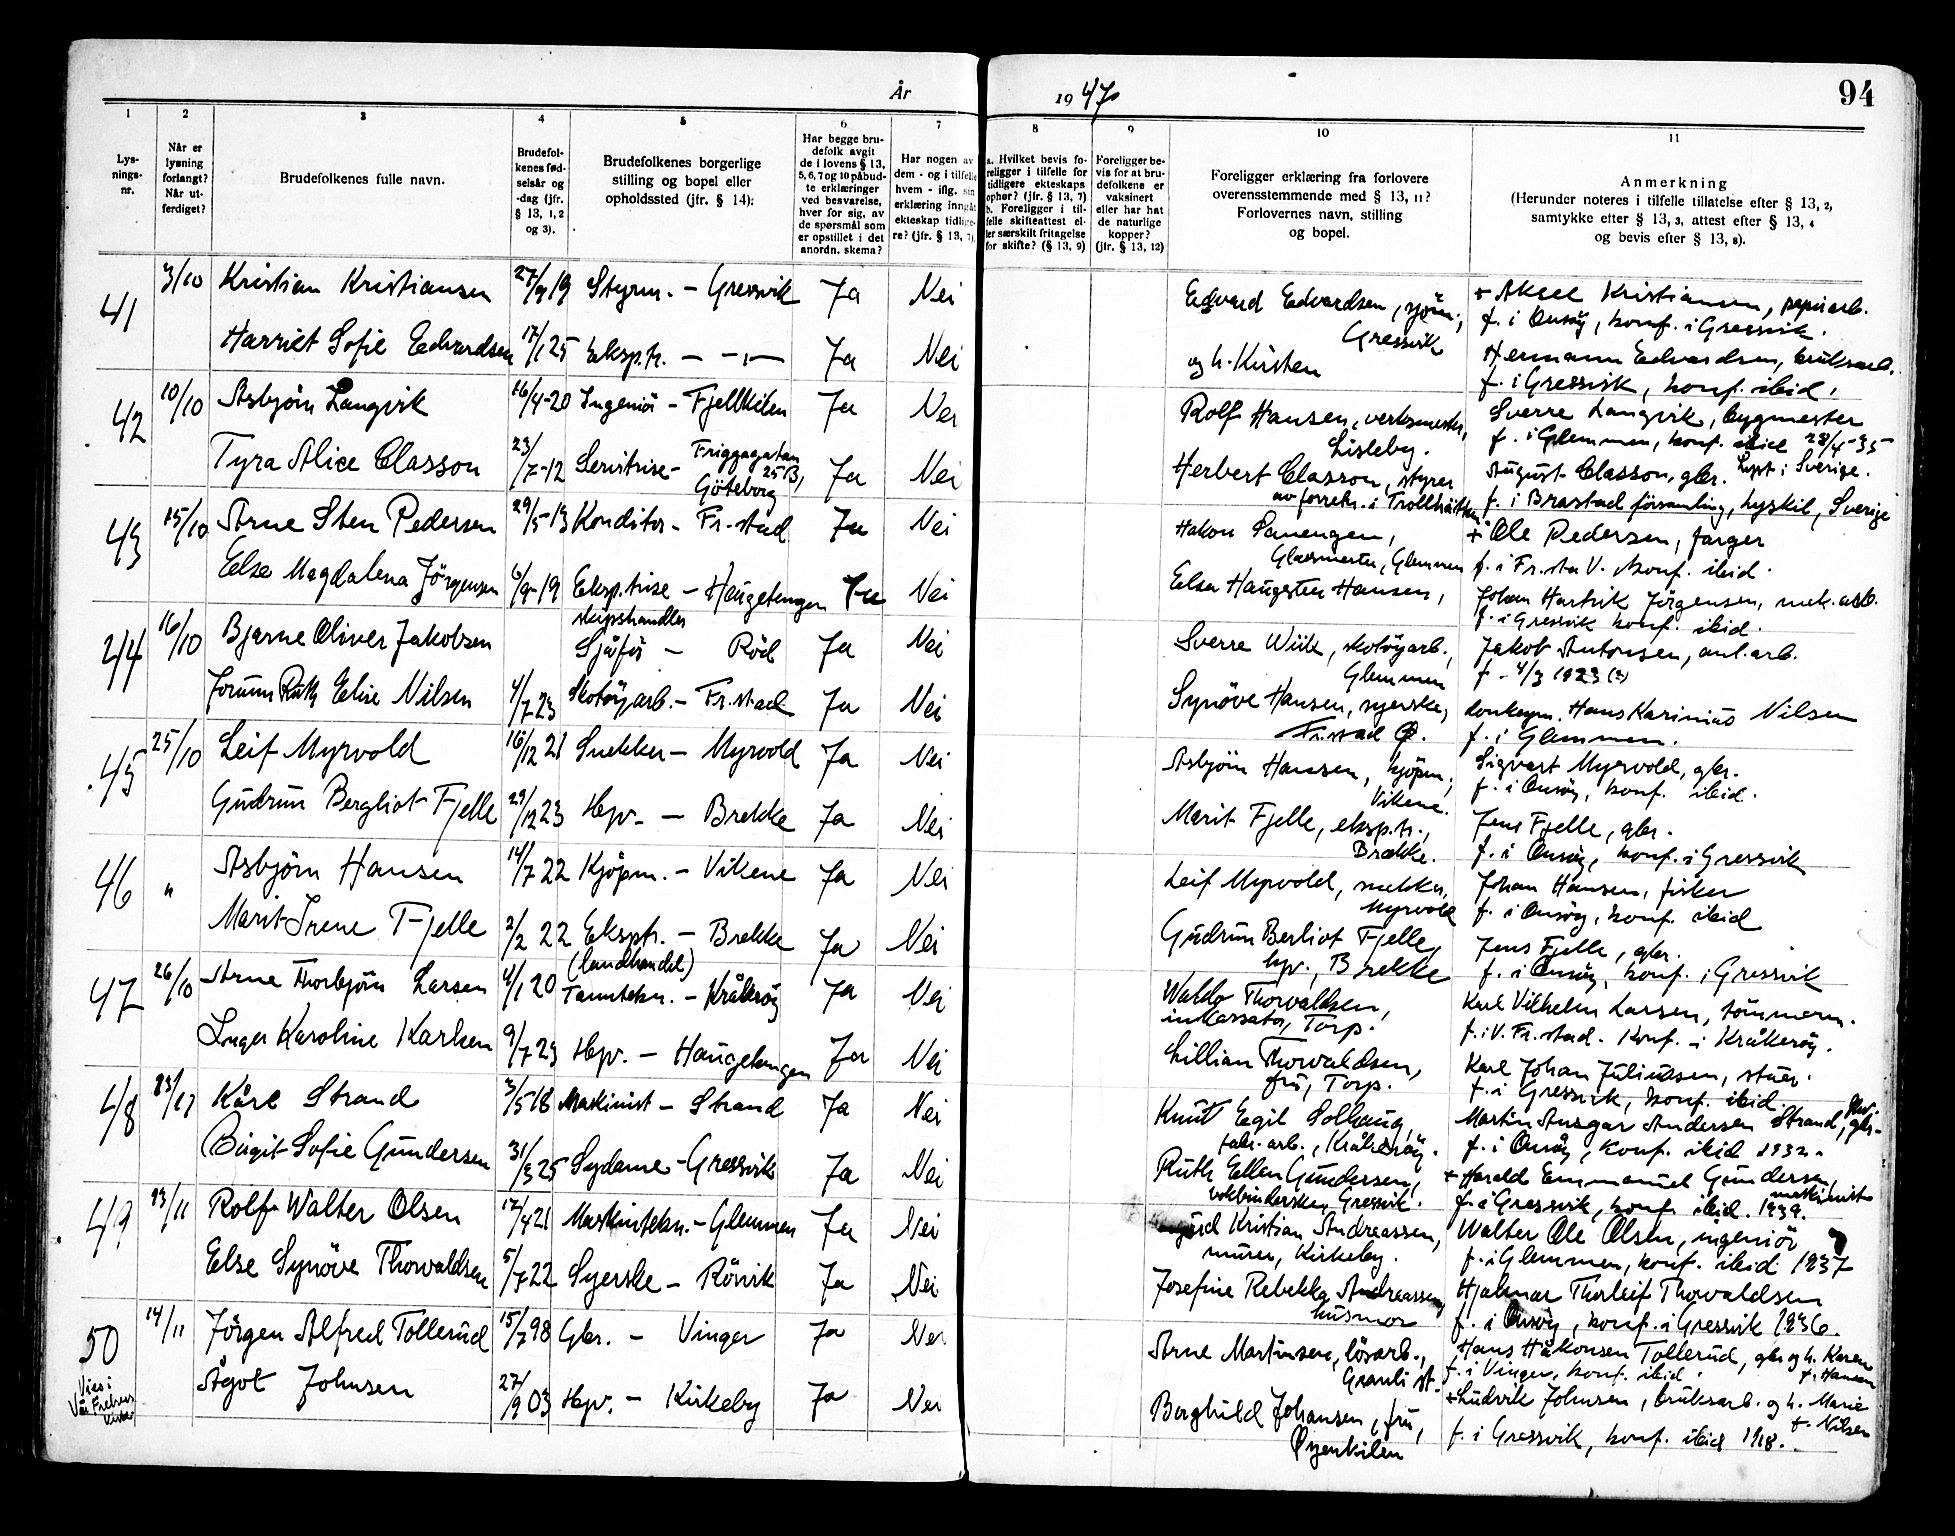 År 1947
94
1
2
3
4
5
6
7
8
9
10
11
Lys-
nings-
nr.
Når er
lysning
forlangt?
Når ut-
ferdiget?
Brudefolkenes fulle navn.
Brudefol-
kenes fød-
selsår og
-dag (jfr.
§ 13, 1, 2
og 3).
Brudefolkenes borgerlige
stilling og bopel eller
opholdssted (jfr. § 14):
Har begge bru-
defolk avgit
de i lovens § 13,
5, 6, 7 og 10 påbud-
te erklæringer
ved besvarelse,
hver for sig, av
de spørsmål som
er opstillet i det
anordn. skema?
Har nogen av
dem - og i tilfelle
hvem - iflg. sin
erklæring inngått
ekteskap tidlige-
re? (jfr. § 13, 7).
a. Hvilket bevis fo-
religger i tilfelle for
tidligere ekteskaps
ophør? (jfr. § 13, 7)
b. Foreligger i til-
felle skifteattest el-
ler særskilt fritagelse
for skifte? (§ 13, 9)
Foreligger be-
vis for at bru-
defolkene er
vaksinert
eller har hat
de naturlige
kopper?
(jfr. § 13, 12)
Foreligger erklæring fra forlovere
overensstemmende med § 13, 11?
Forlovernes navn, stilling
og bopel.
Anmerkning
(Herunder noteres i tilfelle tillatelse efter § 13, 2,
samtykke efter § 13, 3, attest efter § 13, 4
og bevis efter § 13, 8).
41 3/10 Kristian Kristiansen 27/9 19 Styrm. - Gressvik Ja Nei
Edvard Edvardsen, sjöm., Gressvik
+ Aksel Kristiansen, papirarb.
f. i Onsöy, konf. i Gressvik.
Harriet Sofie Edvardsen 17/1 25 Eksp.tr. - -"- Ja Nei
og h. Kirsten
Hermann Edvardsen, bruksarb.
f. i Gressvik, konf. ibid.
42 10/10 Asbjörn Langvik 16/4-20 Ingeniör - Fjellkilen Ja Nei
Rolf Hansen, verksmester,
Lisleby.
Sverre Langvik, bygmester
f. i Glemmen, konf. ibid 28/4-35
Tyra Alice Classon 23/7-12 Servitrise - Friggagatan 25B,
Göteborg Ja Nei
Herbert Classon, styrer
av forretn. i Trollhättan
August Classon, gbr. Lyst i Sverige.
f. i Brastad församling, Lyskil, Sverige
43 15/10 Arne Sten Pedersen 29/5-13 Konditor - Fr.stad Ja Nei
Hakon Sanengen,
Glasmester, Glemmen
+ Ole Pedersen, farger
f. i Fr.sta V. konf. ibid.
Else Magdalena Jörgensen 6/9-19 Eksp.trise - Haugetangen Ja Nei
Elsa Haugesten Hansen,
Johan Hartvik Jörgensen, mek.arb.
f. i Gressvik konf. ibid.
44 16/10 Bjarne Oliver Jakobsen
skipshandler
Sjåför - Röd Ja Nei
Sverre Wiik, skotöyarb.,
Glemmen
Jakob Antonsen, anl.arb.
f - 4/3 1923 (?)
Jorunn Ruth Elise Nilsen 4/7 23 Skotöyarb. - Fr.stad Ja Nei
Synöve Hansen, syerske,
Fr.stad Ø.
Hans Karinius Nilsen
f. i Glemmen.
45 25/10 Leif Myrvold 16/12 21 Snekker - Myrvold Ja Nei
Asbjörn Hansen, kjöpm.,
Vikene.
Sigvart Myrvold, gbr.
f. i Onsöy, konf. ibid.
Gudrun Bergliot Fjelle 29/12 23 Hpv. - Brekke Ja Nei
Marit Fjelle, eksp.tr.,
Brække.
Jens Fjelle, gbr.
f. i Onsöy, konf. i Gressvik
46 " Asbjörn Hansen 14/7 22 Kjöpm. - Vikene Ja Nei
Leif Myrvold, snekker,
Myrvold
Johan Hansen, fisker
f. i Onsöy, konf. ibid
Marit Irene Fjelle 2/2 22 Eksptr. - Brekke Ja Nei
(landhandel)
Gudrun Berliot Fjelle,
hpv., Brekke
Jens Fjelle, gbr.
f. i Onsöy, konf. i Gressvik
47 26/10 Arne Thorbjörn Larsen 4/1 20 Tanntekn. - Kråkeröy Ja Nei
Waldo Thorvaldsen,
inkassator, Torp.
Karl Vilhelm Larsen, tömmerm.
f. i V. Fr.stad. Konf. i Kråkeröy.
Inger Karoline Karlsen 9/7 23 Hpv. - Haugetangen Ja Nei
Lillian Thorvaldsen,
fru, Torp.
Karl Johan Juliussen, stuer.
f. i Gressvik, konf. ibid.
48 Kåre Strand 3/5 18 Maskinist - Strand Ja Nei
Knut Egil Solhaug,
fabr.arb., Kråkeröy.
Martin Ansgar Andersen Strand, gbr.
f. i Onsöy, konf. ibid 1932.
Birgit Sofie Gundersen 31/3 25 Sydame - Gressvik Ja Nei
Ruth Ellen Gundersen,
bokbinderske, Gressvik.
+ Harald Emmanuel Gundersen,
maskinist
f. i Gressvik, konf. ibid. 1939.
49 13/11 Rolf Walter Olsen 12/4 21 Maskintekn. - Glemmen Ja Nei
Kristian Andreassen,
murer, Kirkeby.
Walter Ole Olsen, ingeniör
f. i Glemmen, konf. ibid 1937
Else Synöve Thorvaldsen 5/7 22 Syerske - Rörvik Ja Nei
Josefine Rebekka Andreassen,
husmor
Hjalmar Thorleif Thorvaldsen
f. i Onsöy, konf. i Gressvik 1936.
50 14/11 Jörgen Alfred Tollerud 15/7 98 Gbr. - Vinger Ja Nei
Arne Martinsen, lösarb.,
Granli st.
Hans Håkonsen Tollerud, gbr og h. Karen
f. Hansen
f. i Vinger, konf. ibid.
Vies i
Vår Frelsers
kirke
Ågot Johnsen 27/9 03 Hpv. - Kirkeby Ja Nei
Borghild Johansen, fru,
Øyenkilen
+ Ludvik Johnsen, bruksarb. og h. Marie
f. Nilsen
f. i Gressvik, konf. ibid 1918.